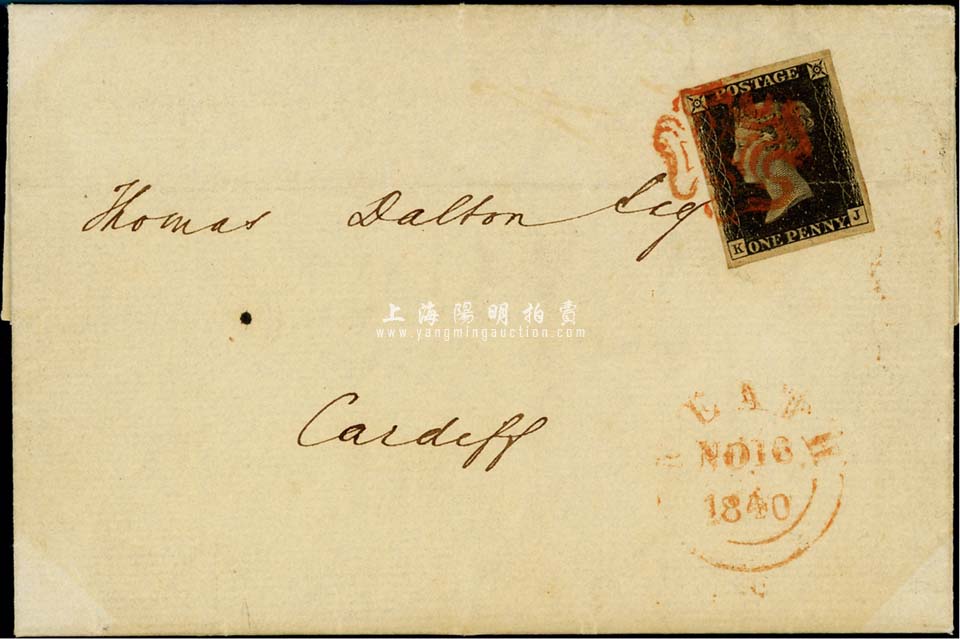 POSTAGE
K ONE PENNY. J
Thomas Dalton Esq
上海陽明拍賣
www.yangmingauction.com
Cardiff
NO 16
1840